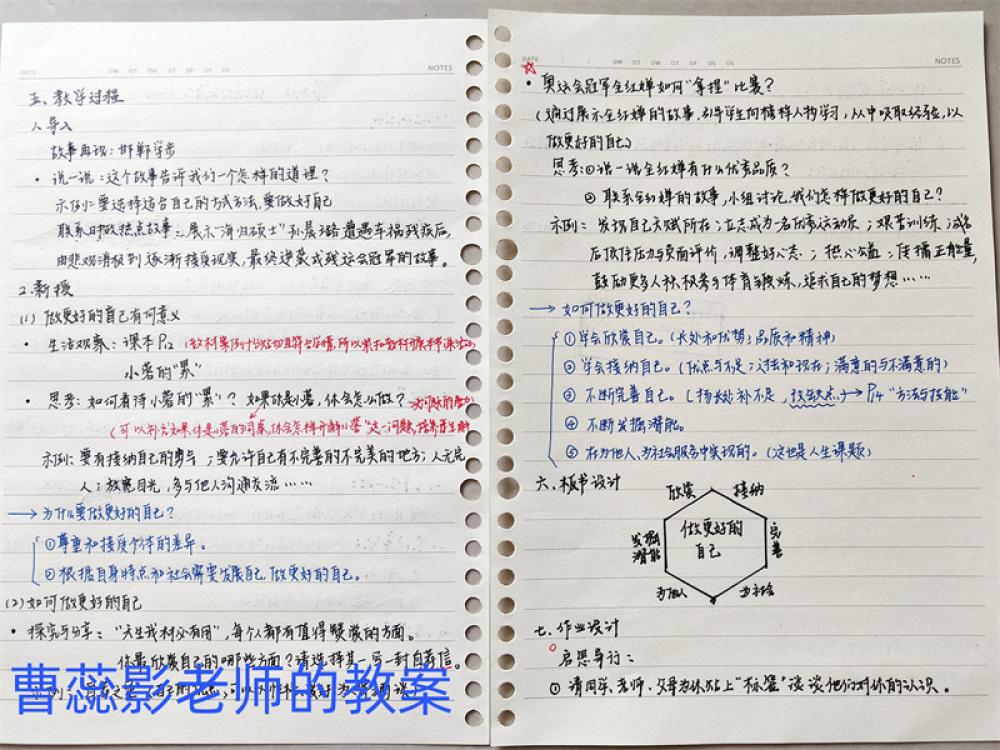 DATE
NOTES
五、教学过程
1.导入
故事再现：邯郸学步
• 说一说：这个故事告诉我们一个怎样的道理？
示例：要选择适合自己的方式方法，要做好自己
联系时政热点故事：展示"海归硕士"孙晨潞遭遇车祸残疾后，
由悲观消极到逐渐接受现实，最终逆袭成残运会冠军的故事。
2.新授
(1) 做更好的自己有何意义
• 生活观察：课本P12
小蓉的"累"
• 思考：如何看待小蓉的"累"？如果你是小蓉，你会怎么做？
示例：要有接纳自己的勇气；要允许自己有不完善的不完美的地方；人无完
人；放宽目光，多与他人沟通交流……
→ 为什么要做更好的自己？
①尊重和接受个体的差异。
②根据自身特点和社会需要发展自己，做更好的自己。
(2)如何做更好的自己
• 探究与分享："天生我材必有用"，每个人都有值得赞赏的方面。
你最欣赏自己的哪些方面？请选择其一写一封自荐信。
曹蕊影老师的教案
DATE
NOTES
• 奥运会冠军全红婵如何"拿捏"比赛？
(通过展示全红婵的故事，引导学生向榜样人物学习，从中吸取经验，以
做更好的自己)
思考：①说一说全红婵有什么优秀品质？
②联系全红婵的故事，小组讨论，我们怎样做更好的自己？
示例：发现自己天赋所在；立志成为一名优秀运动员；艰苦训练；成名
后顶住压力与负面评价，调整好心态；热心公益；传播正能量，
鼓励更多人积极参与体育锻炼，追求自己的梦想……
→ 如何做更好的自己？
①学会欣赏自己。(长处和优势；品质和精神)
②学会接纳自己。(优点与不足；过去和现在；满意的与不满意的)
③不断完善自己。(扬长处补不足，改缺点)→P14 "方法与技能"
④不断发掘潜能。
⑤在为他人、为社会服务中实现的。(这也是人生课题)
六、板书设计
欣赏 接纳
发掘潜能 做更好的自己 完善
为他人 为社会
七、作业设计
启思导行：
①请同学、老师、父母为你贴上"标签"谈谈他们对你的认识。